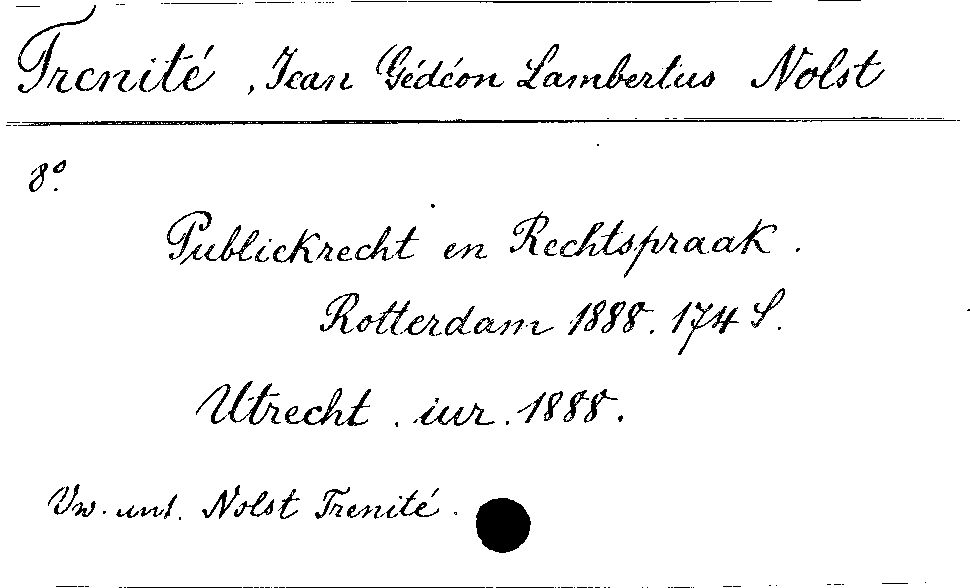 Trenité, Jean Gédéon Lambertus Nolst
8°.
Publickrecht en Rechtspraak.
Rotterdam 1888. 174 S.
Utrecht. iur. 1888.
Vw. unt. Nolst Trenité.